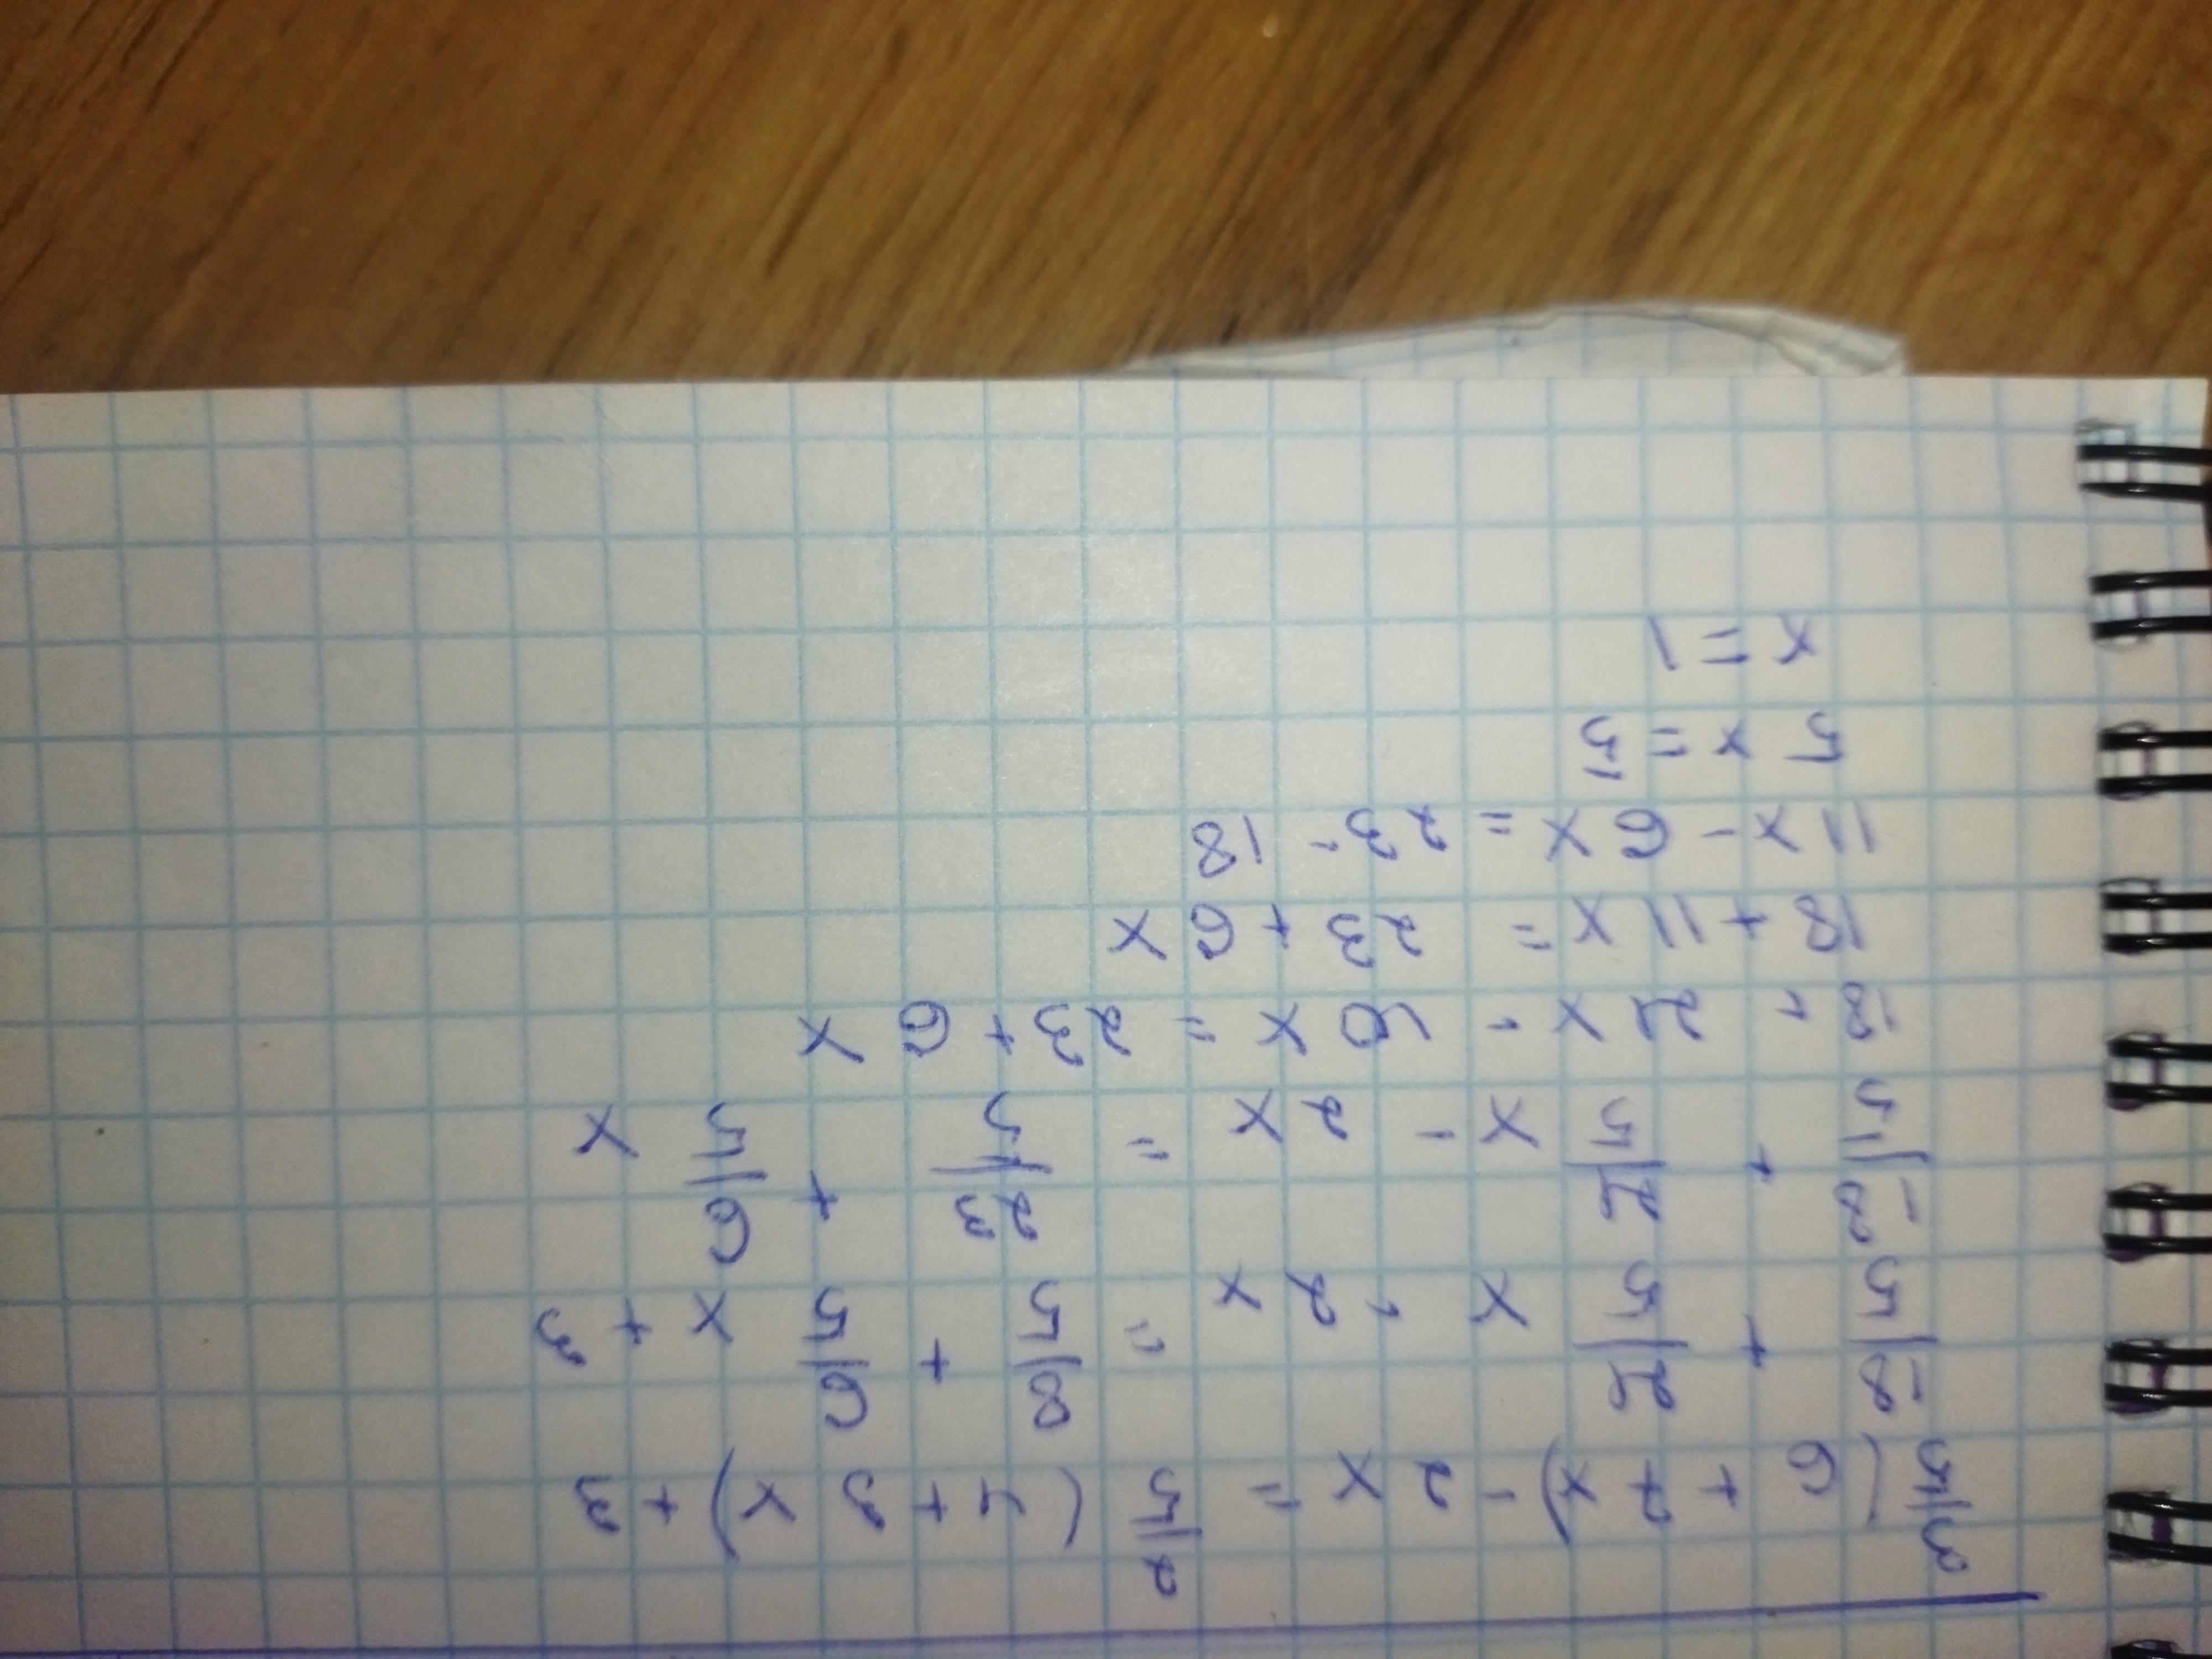 3/5 (6 + 7x) - 2x = 2/5 (4 + 3x) + 3
18/5 + 21/5 x - 2x = 8/5 + 6/5 x + 3
18/5 + 21/5 x - 2x = 23/5 + 6/5 x
18 + 21x - 10x = 23 + 6x
18 + 11x = 23 + 6x
11x - 6x = 23 - 18
5x = 5
x = 1